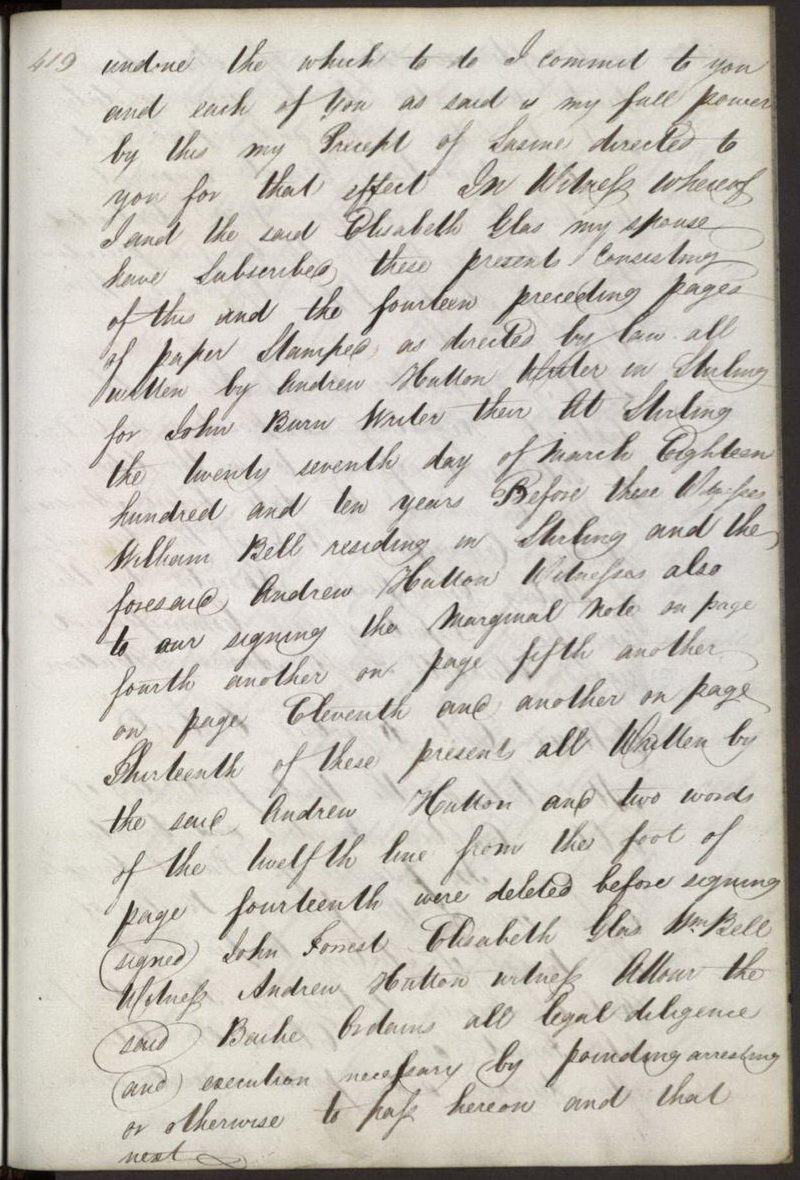 419
undone the which to do I commit to you
and each of you as said is my full power
by this my Precept of Sasine directed to
you for that effect In Witness whereof
I and the said Elisabeth Glas my spouse
have Subscribed these presents Consisting
of this and the fourteen preceeding pages
of paper Stamped as directed by law all
written by Andrew Hutton Writer in Stirling
for John Burn Writer their At Stirling
the twenty seventh day of March Eighteen
hundred and ten years Before these Witnesses
William Bell residing in Stirling and the
foresaid Andrew Hutton Witnesses also
to our signing the Marginal Note on page
fourth another on page fifth another
on page Eleventh and another on page
Thirteenth of these presents all Written by
the said Andrew Hutton and two words
of the twelfth line from the foot of
page fourteenth were deleted before signing
(signed) John Forrest Elisabeth Glas Wm Bell
Witness Andrew Hutton witness Attour the
said Bailie Ordains all legal diligence
and execution necessary by pounding arresting
or otherwise to pass hereon and that
next